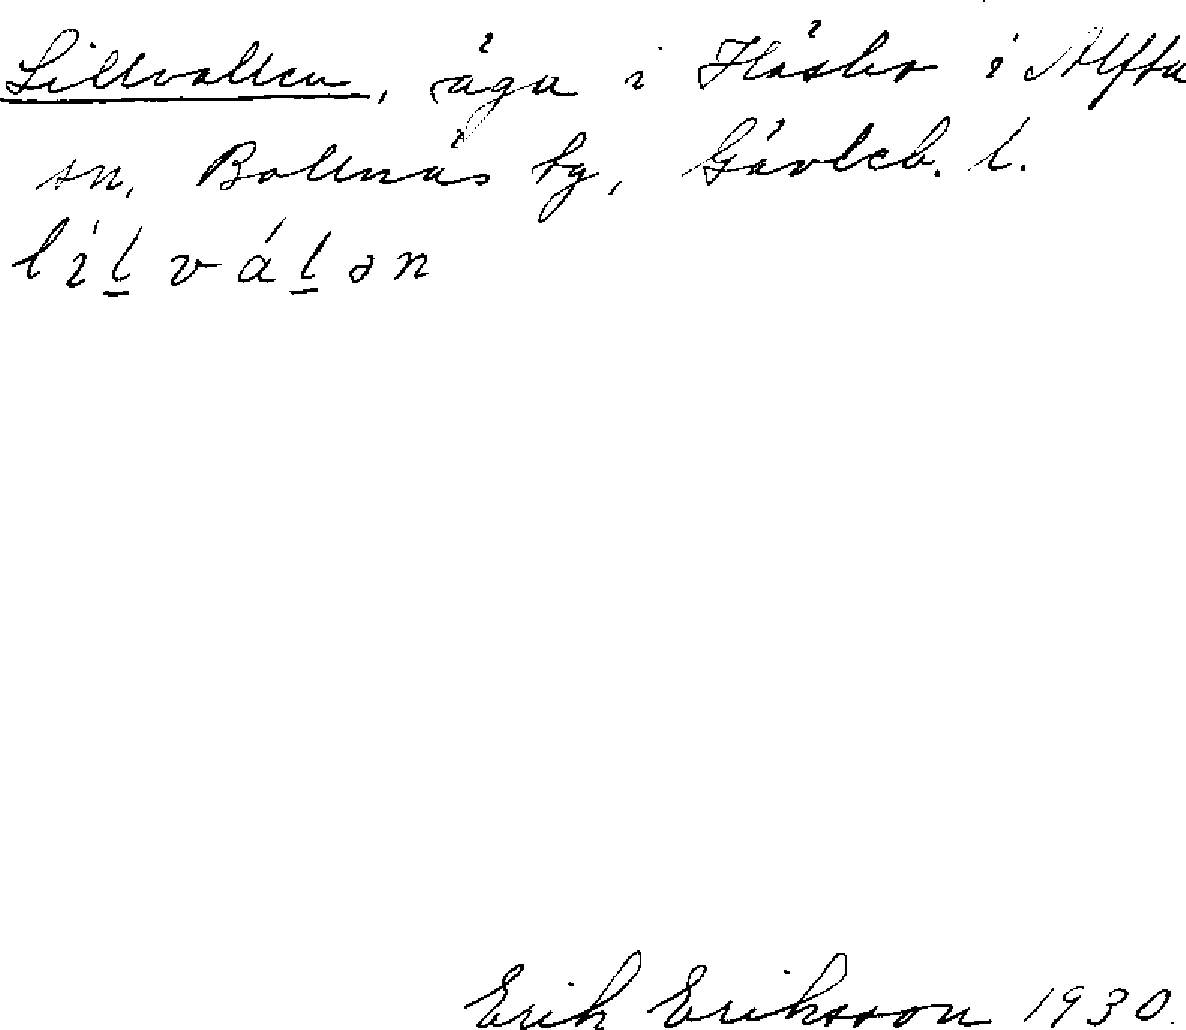 Lillvallen, äga i Hässbo i Alfta
sn, Bollnäs tg, Gävleb. l.
lìl̲ vál̲ ən
Erik Eriksson 1930.